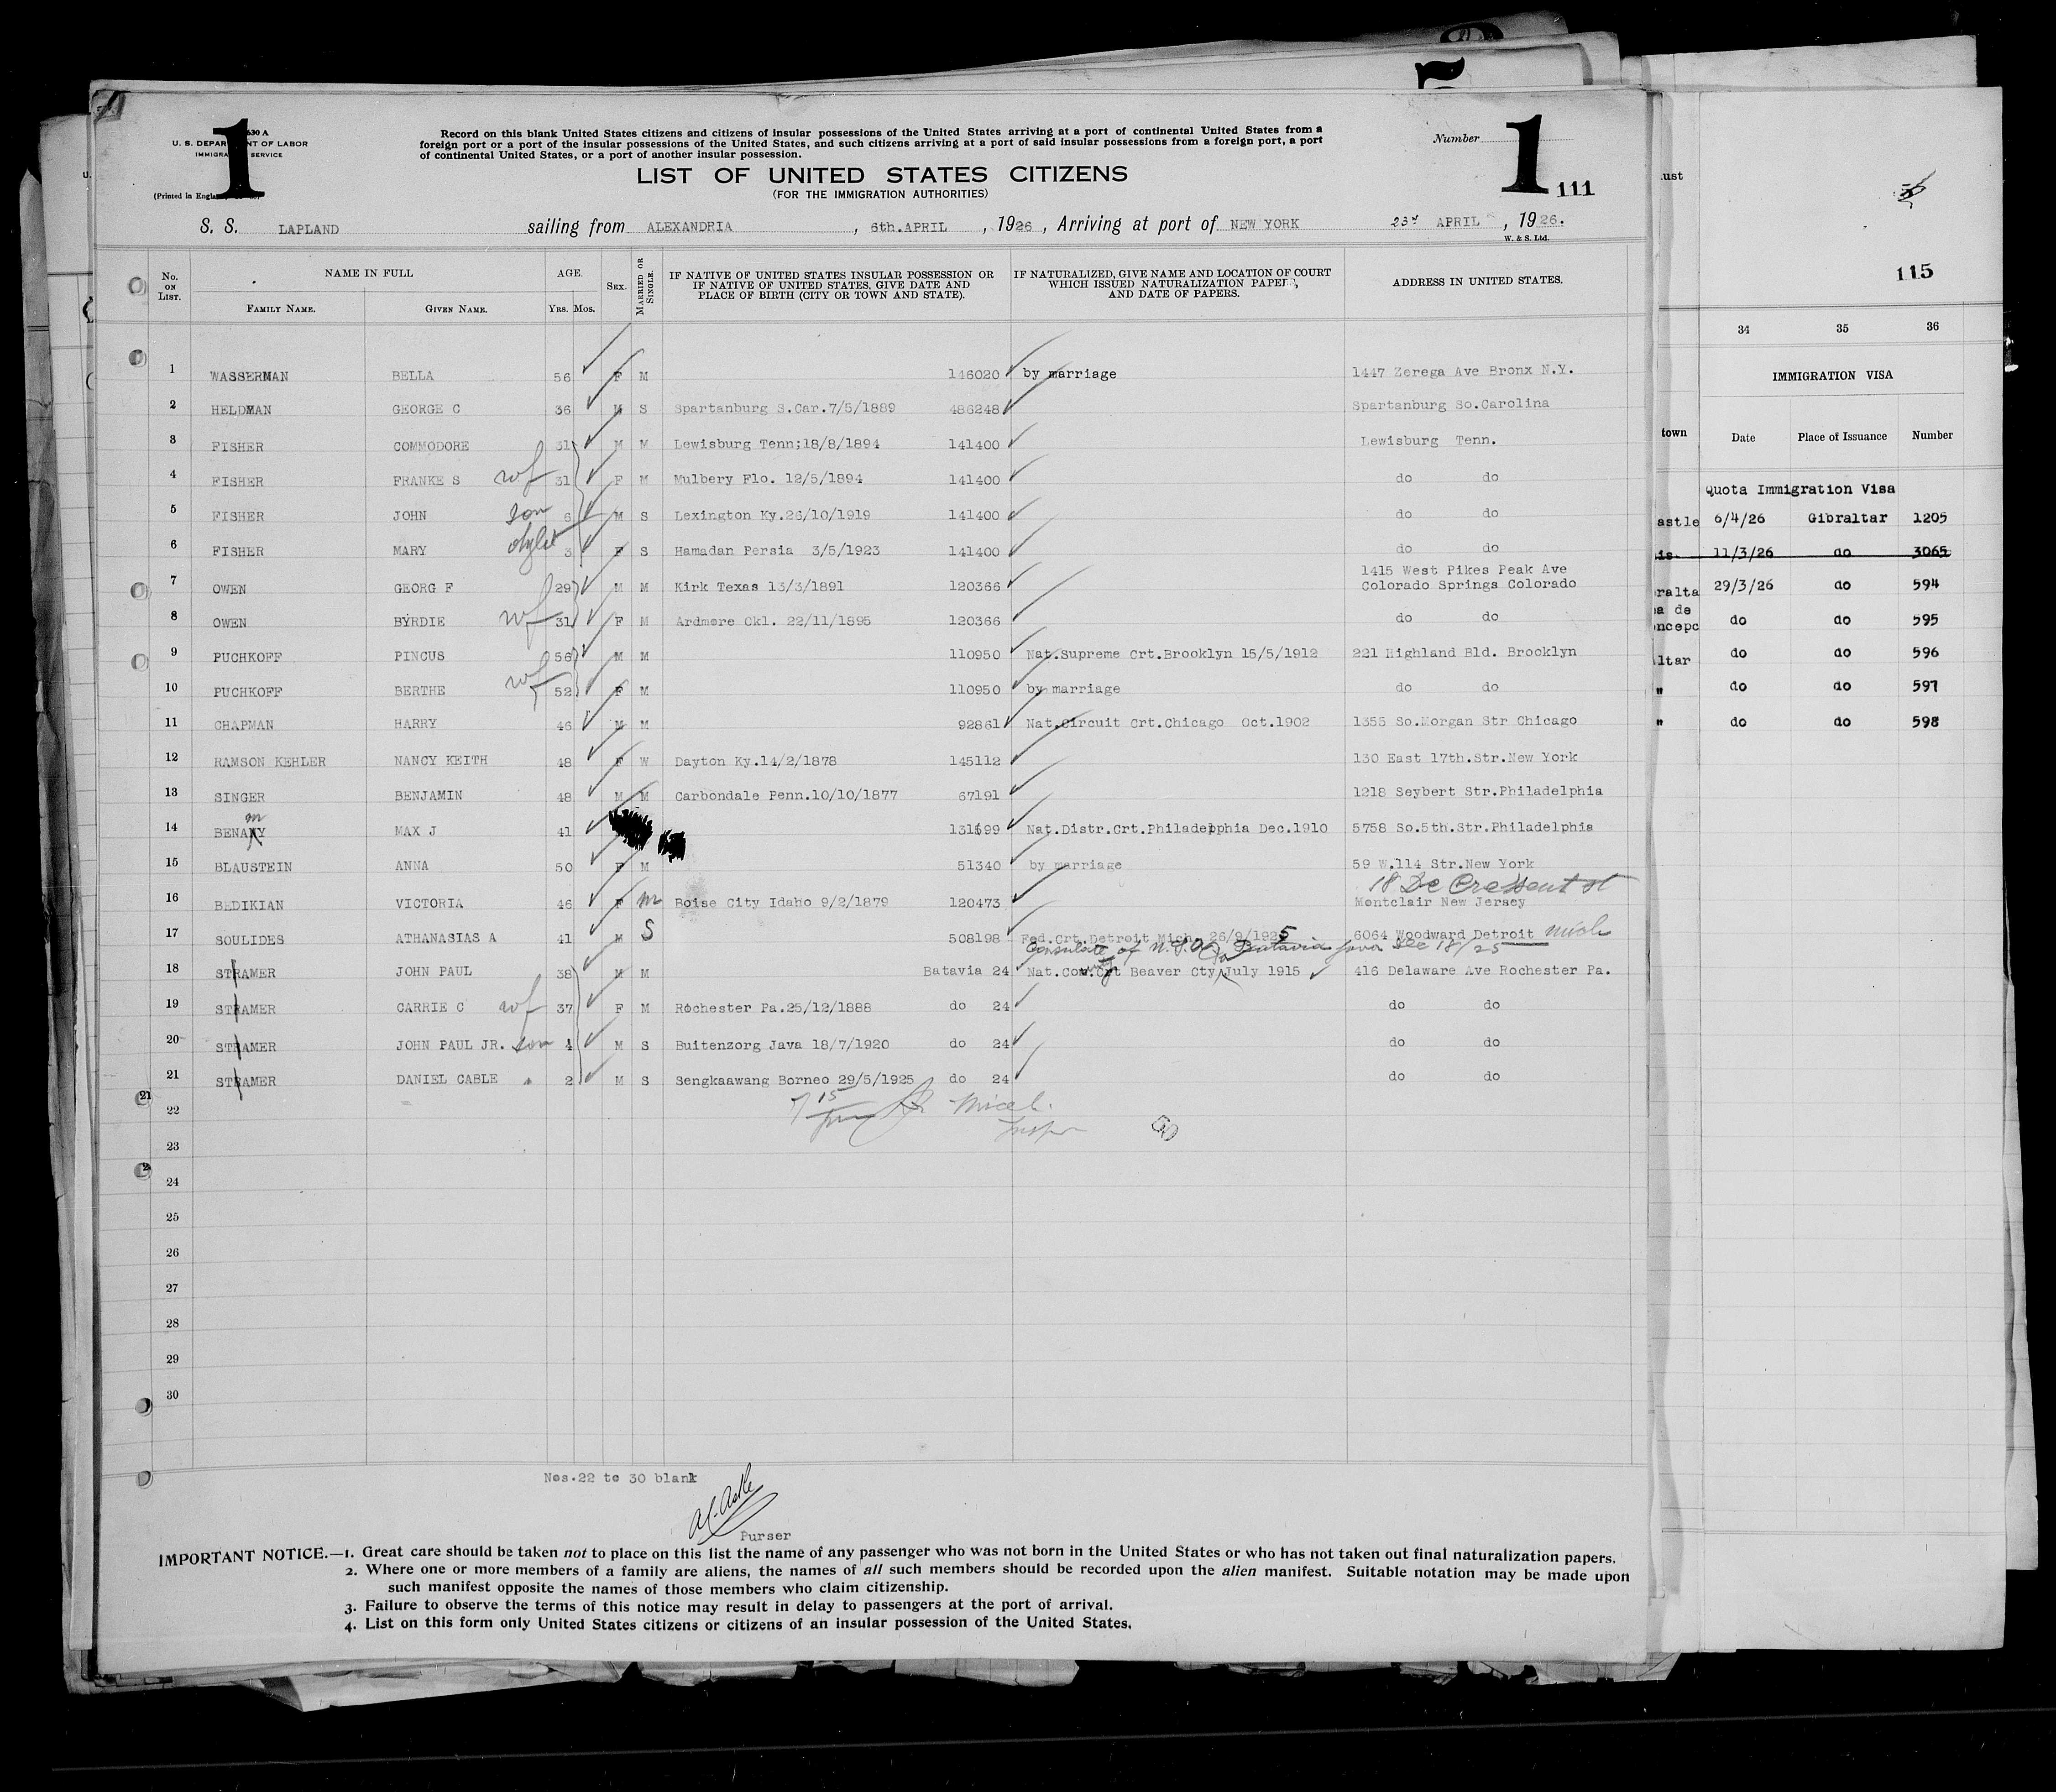 1
630 A
U. S. DEPARTMENT OF LABOR
IMMIGRATION SERVICE
(Printed in England)
Record on this blank United States citizens and citizens of insular possessions of the United States arriving at a port of continental United States from a
foreign port or a port of the insular possessions of the United States, and such citizens arriving at a port of said insular possessions from a foreign port, a port
of continental United States, or a port of another insular possession.
Number 1
111
LIST OF UNITED STATES CITIZENS
(FOR THE IMMIGRATION AUTHORITIES)
S. S. LAPLAND sailing from ALEXANDRIA, 6th.APRIL, 1926, Arriving at port of NEW YORK 23d APRIL, 1926.
W. & S. Ltd.
No. ON LIST.
NAME IN FULL
FAMILY NAME. GIVEN NAME.
AGE. YRS. MOS.
SEX.
MARRIED OR SINGLE.
IF NATIVE OF UNITED STATES INSULAR POSSESSION OR
IF NATIVE OF UNITED STATES, GIVE DATE AND
PLACE OF BIRTH (CITY OR TOWN AND STATE).
IF NATURALIZED, GIVE NAME AND LOCATION OF COURT
WHICH ISSUED NATURALIZATION PAPERS,
AND DATE OF PAPERS.
ADDRESS IN UNITED STATES.
1 WASSERMAN BELLA 56 F M 146020 by marriage 1447 Zerega Ave Bronx N.Y.
2 HELDMAN GEORGE C 36 M S Spartanburg S.Car.7/5/1889 486248 Spartanburg So.Carolina
3 FISHER COMMODORE 31 M M Lewisburg Tenn;18/8/1894 141400 Lewisburg Tenn.
4 FISHER FRANKE S wf 31 F M Mulbery Flo. 12/5/1894 141400 do do
5 FISHER JOHN son 6 M S Lexington Ky.26/10/1919 141400 do do
6 FISHER MARY 3 F S Hamadan Persia 3/5/1923 141400 do do
7 OWEN GEORG F 29 M M Kirk Texas 13/3/1891 120366 1415 West Pikes Peak Ave
Colorado Springs Colorado
8 OWEN BYRDIE wf 31 F M Ardmore Okl. 22/11/1895 120366 do do
9 PUCHKOFF PINCUS 56 M M 110950 Nat.Supreme Crt.Brooklyn 15/5/1912 221 Highland Bld. Brooklyn
10 PUCHKOFF BERTHE wf 52 F M 110950 by marriage do do
11 CHAPMAN HARRY 46 M M 92861 Nat.Circuit Crt.Chicago Oct.1902 1355 So.Morgan Str Chicago
12 RAMSON KEHLER NANCY KEITH 48 F W Dayton Ky.14/2/1878 145112 130 East 17th.Str.New York
13 SINGER BENJAMIN 48 M M Carbondale Penn.10/10/1877 67191 1218 Seybert Str.Philadelphia
m
14 BENAXY MAX J 41 131599 Nat.Distr.Crt.Philadelpphia Dec.1910 5758 So.5th.Str.Philadelphia
15 BLAUSTEIN ANNA 50 F M 51340 by marriage 59 W.114 Str.New York
16 BEDIKIAN VICTORIA 46 F m Boise City Idaho 9/2/1879 120473 18 De Cressent st
Montclair New Jersey
17 SOULIDES ATHANASIAS A 41 M S 508198 Fed.Crt.Detroit Mich. 26/9/1925 6064 Woodward Detroit Mich
Consulate of U.S.A. Batavia Java Dec 18/25
18 STRAMER JOHN PAUL 38 M M Batavia 24 Nat.Com.Crt Beaver Cty July 1915 416 Delaware Ave Rochester Pa.
19 STRAMER CARRIE C wf 37 F M Rochester Pa.25/12/1888 do 24 do do
20 STRAMER JOHN PAUL JR. son 4 M S Buitenzorg Java 18/7/1920 do 24 do do
21 STRAMER DANIEL CABLE " 2 M S Sengkaawang Borneo 29/5/1925 do 24 do do
21
22
23
2
24
25
26
27
28
29
30
Nos.22 to 30 blank
Purser
IMPORTANT NOTICE.—1. Great care should be taken not to place on this list the name of any passenger who was not born in the United States or who has not taken out final naturalization papers.
2. Where one or more members of a family are aliens, the names of all such members should be recorded upon the alien manifest. Suitable notation may be made upon
such manifest opposite the names of those members who claim citizenship.
3. Failure to observe the terms of this notice may result in delay to passengers at the port of arrival.
4. List on this form only United States citizens or citizens of an insular possession of the United States.
5
ust
115
34 35 36
IMMIGRATION VISA
town Date Place of Issuance Number
Quota Immigration Visa
astle 6/4/26 Gibraltar 1205
is 11/3/26 do 3065
ralta 29/3/26 do 594
a de
ncepc do do 595
ltar do do 596
" do do 597
" do do 598